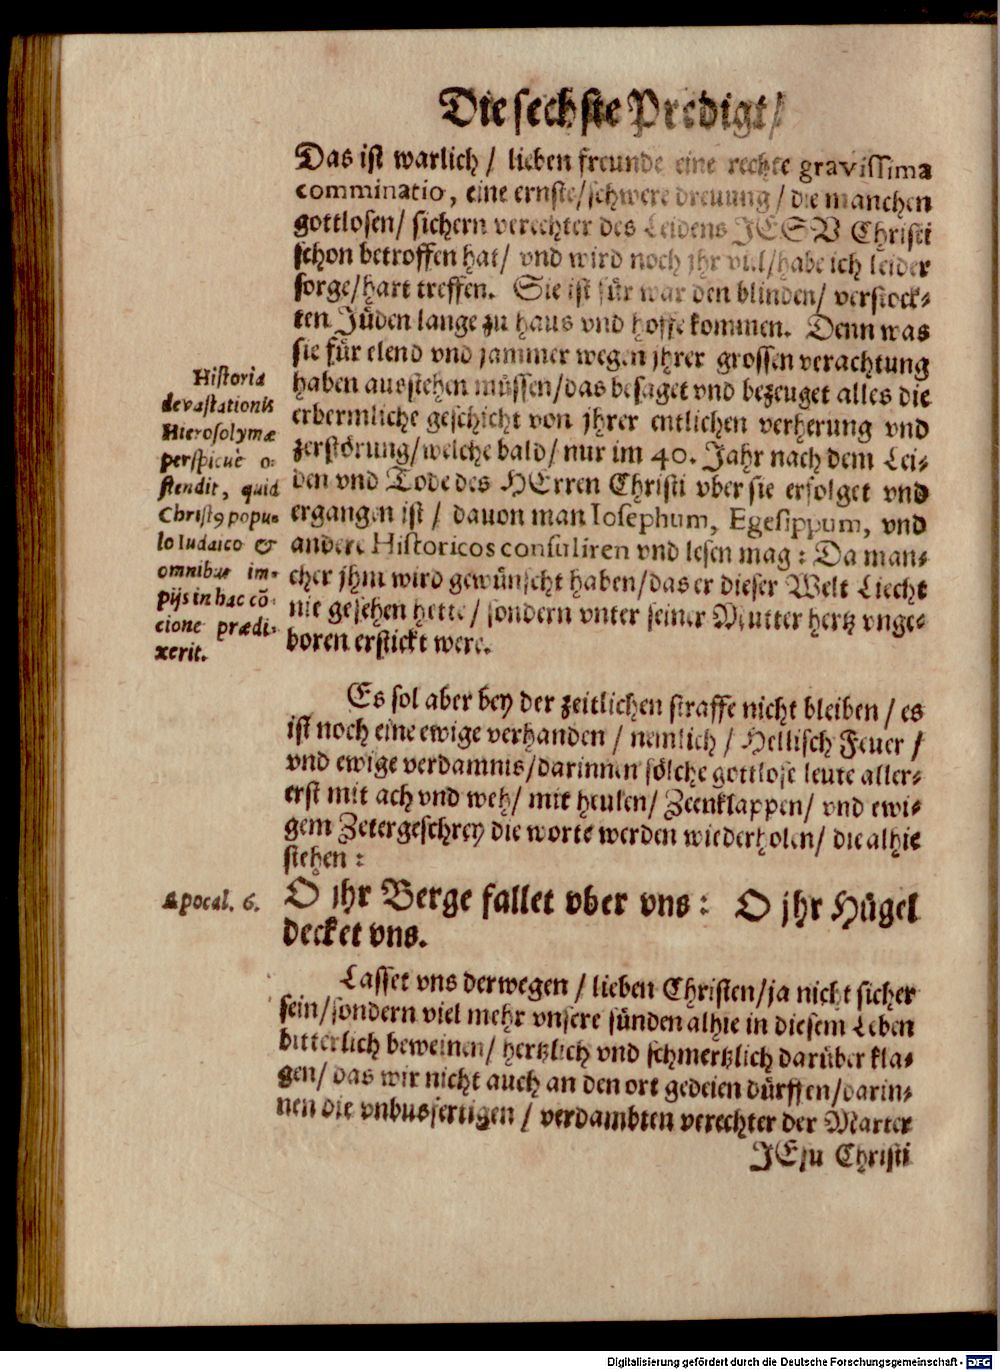 Die sechste Predigt/
Das ist warlich / lieben freunde eine rechte gravissima
comminatio, eine ernste/schwere dreuung / die manchen
gottlosen/ sichern verechter des Leidens JESV Christi
schon betroffen hat/ vnd wird noch jhr viel/habe ich leider
sorge/hart treffen. Sie ist für war den blinden/ verstock-
ten Jüden lange zu haus vnd hoffe kommen. Denn was
sie für elend vnd jammer wegen jhrer grossen verachtung
haben ausstehen müssen/das besaget vnd bezeuget alles die
erbermliche geschicht von jhrer entlichen verherung vnd
zerstörung/welche bald/ nur im 40. Jahr nach dem Lei-
den vnd Tode des HErren Christi vber sie erfolget vnd
ergangen ist / dauon man Iosephum, Egesippum, vnd
andere Historicos consuliren vnd lesen mag: Da man-
cher jhm wird gewünscht haben/das er dieser Welt Liecht
nie gesehen hette/ sondern vnter seiner Mutter hertz vnge-
boren erstickt were.
Historia
devastationis
Hierosolymæ
perspicuè o-
stendit, quid
Christꝰ popu-
lo Iudaico &
omnibus im-
pijs in hac cõ-
cione prædi-
xerit.
Es sol aber bey der zeitlichen straffe nicht bleiben / es
ist noch eine ewige verhanden / nemlich / Hellisch Feuer /
vnd ewige verdamnis/darinnen sölche gottlose leute aller-
erst mit ach vnd weh/ mit heulen/ Zeenklappen/ vnd ewi-
gem Zetergeschrey die worte werden wiederholen/ die alhie
stehen:
Apocal. 6.
O jhr Berge fallet vber vns: O jhr Hügel
decket vns.
Lasset vns derwegen / lieben Christen/ja nicht sicher
sein/sondern viel mehr vnsere sünden alhie in diesem Leben
bitterlich beweinen/ hertzlich vnd schmertzlich darüber kla-
gen/ das wir nicht auch an den ort gedeien dürffen/darin-
nen die vnbusfertigen / verdambten verechter der Marter
JEsu Christi
Digitalisierung gefördert durch die Deutsche Forschungsgemeinschaft - DFG